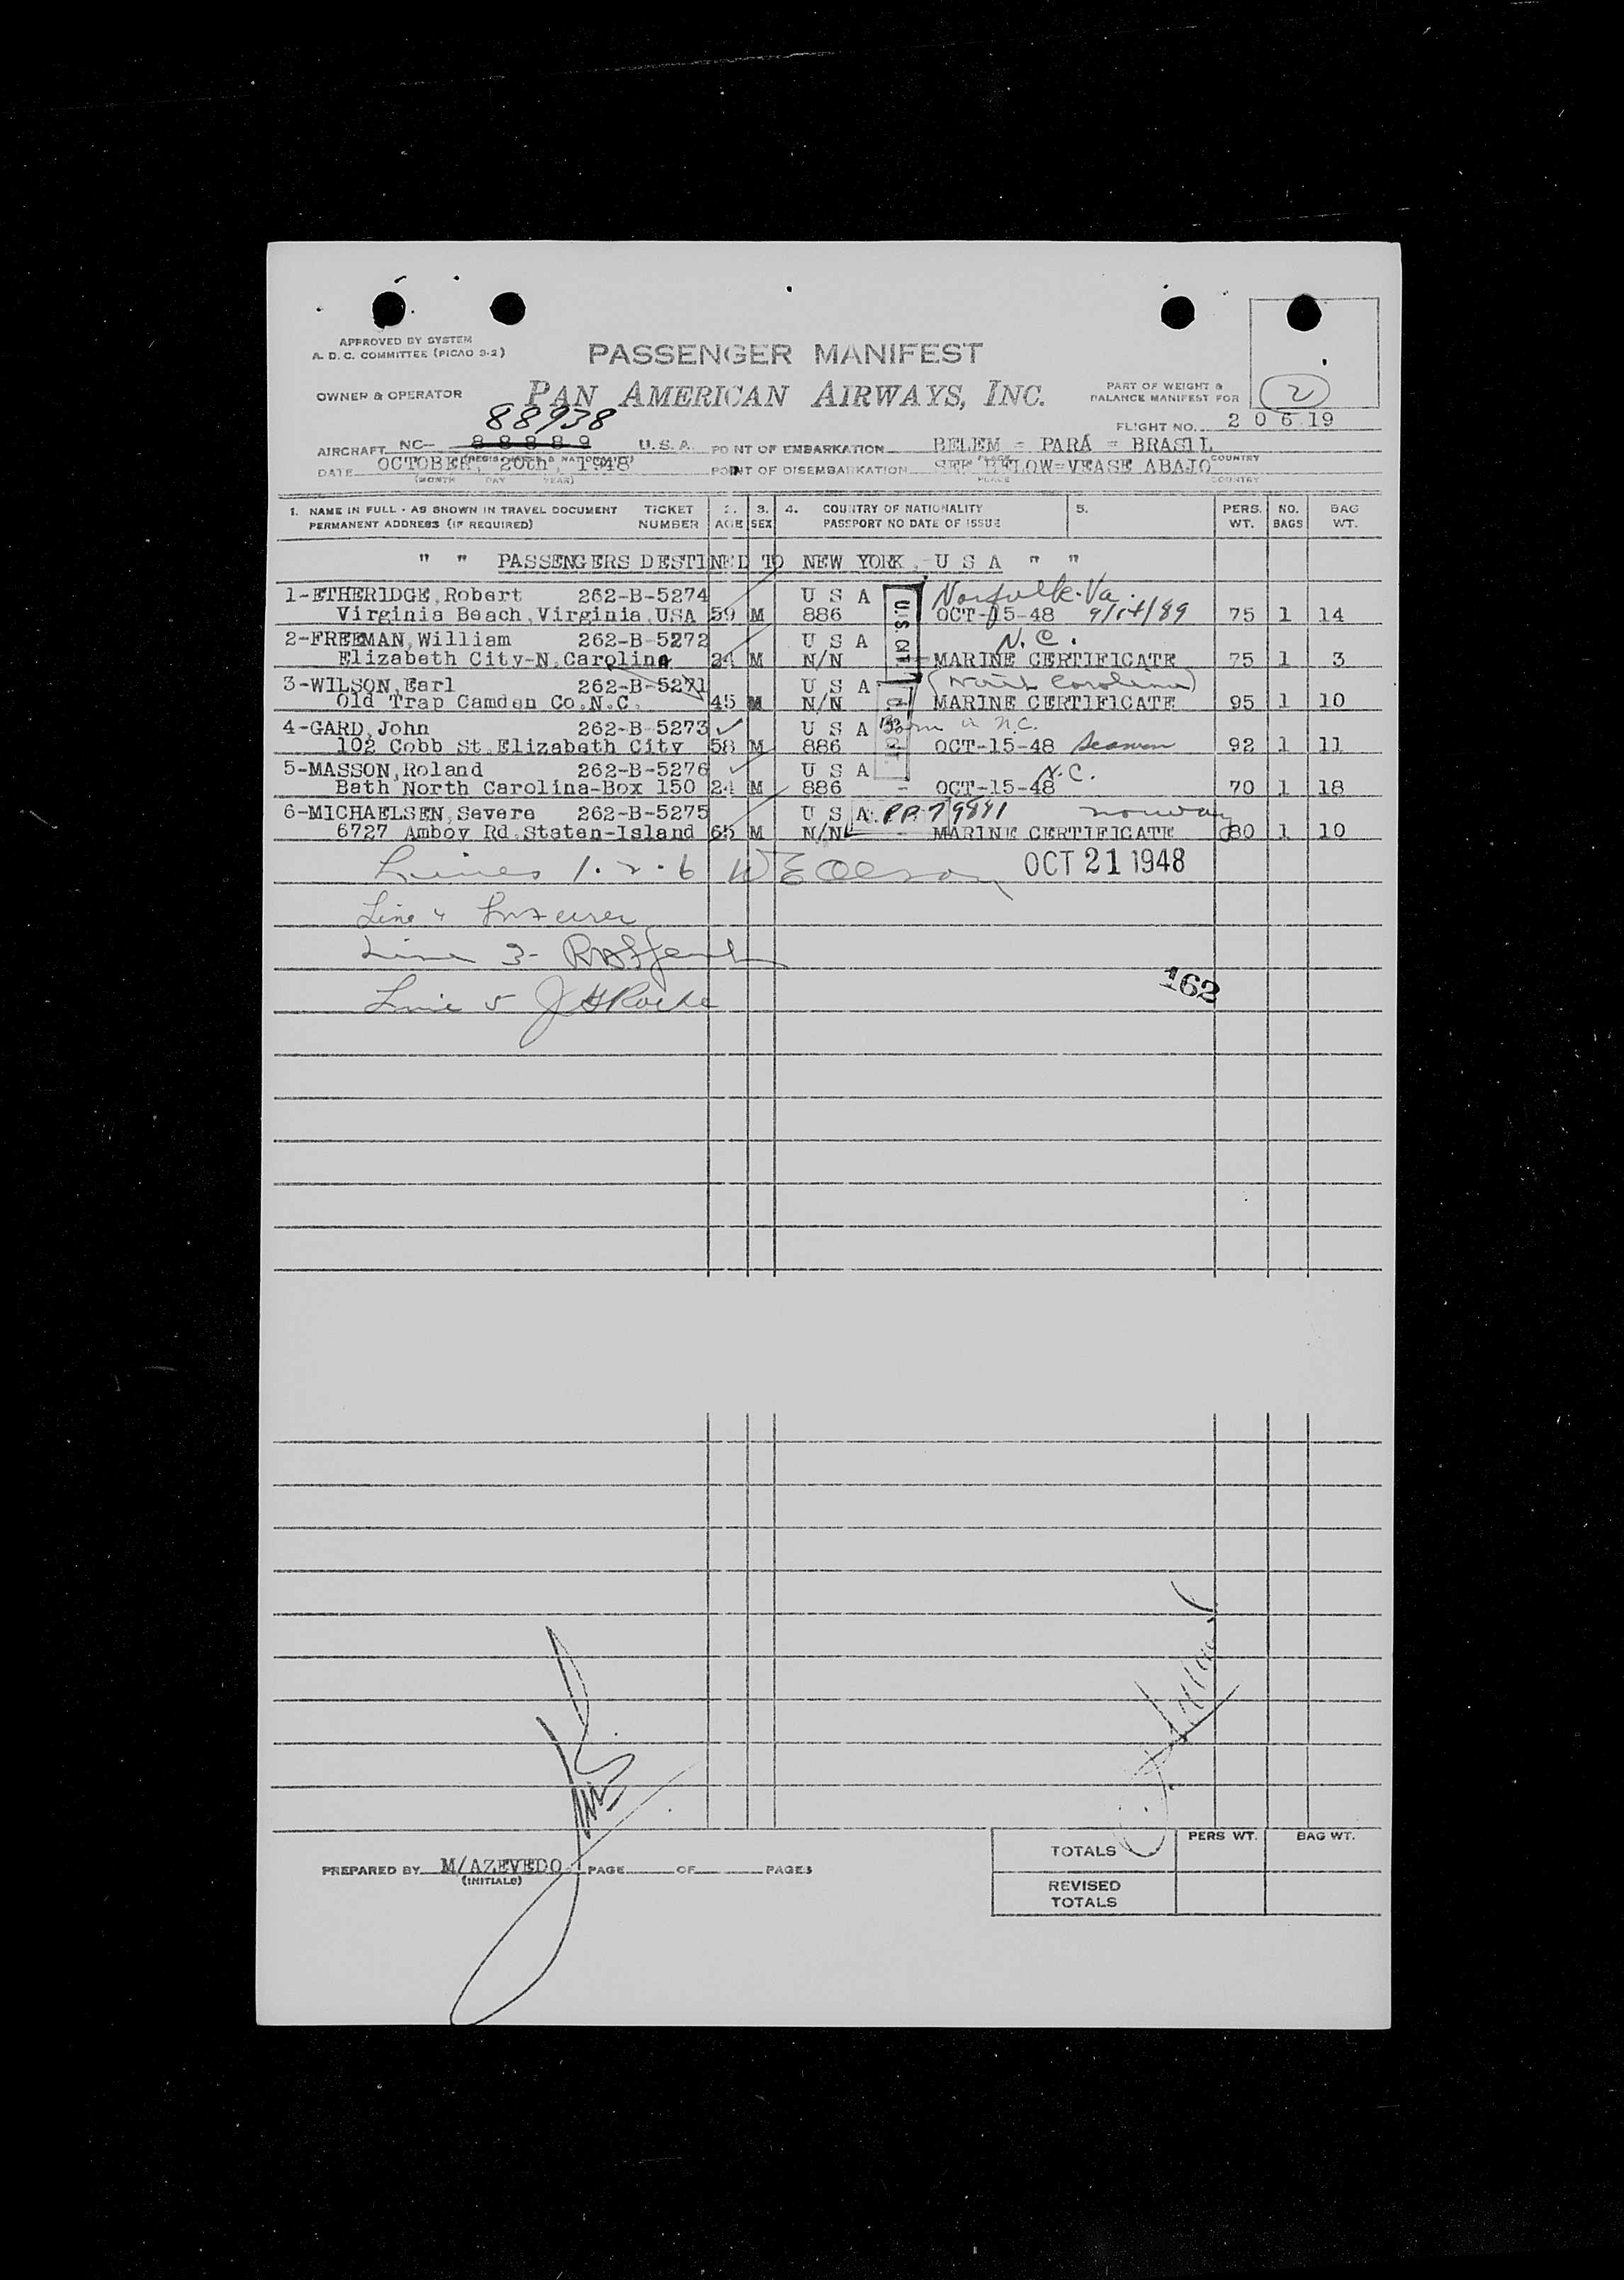 APPROVED BY SYSTEM
A. D. C. COMMITTEE (PICAO S-2)
PASSENGER MANIFEST
OWNER & OPERATOR PAN AMERICAN AIRWAYS, INC.
PART OF WEIGHT &
BALANCE MANIFEST FOR
2
88938
FLIGHT NO. 206 19
AIRCRAFT NC- 88889 U.S.A. POINT OF EMBARKATION BELEM = PARÁ = BRASIL
DATE OCTOBER, 20th, 1948 POINT OF DISEMBARKATION SEE BELOW=VEASE ABAJO
COUNTRY
(MONTH DAY YEAR) PLACE COUNTRY
1. NAME IN FULL - AS SHOWN IN TRAVEL DOCUMENT TICKET 2. 3. 4. COUNTRY OF NATIONALITY 5. PERS. NO. BAG
PERMANENT ADDRESS (IF REQUIRED) NUMBER AGE SEX PASSPORT NO DATE OF ISSUE WT. BAGS WT.
" " PASSENGERS DESTINED TO NEW YORK, U S A " "
1-ETHERIDGE, Robert 262-B-5274 U S A Norfolk. Va.
Virginia Beach, Virginia, USA 59 M 886 OCT-15-48 9/14/89 75 1 14
2-FREEMAN, William 262-B-5272 U S A N.C.
Elizabeth City-N. Carolina 24 M N/N MARINE CERTIFICATE 75 1 3
3-WILSON, Earl 262-B-5271 U S A (North Carolina)
Old Trap Camden Co. N.C. 45 M N/N MARINE CERTIFICATE 95 1 10
4-GARD, John 262-B-5273 U S A Born in N.C.
102 Cobb St. Elizabeth City 58 M 886 OCT-15-48 Seaman 92 1 11
5-MASSON, Roland 262-B-5276 U S A N.C.
Bath North Carolina-Box 150 24 M 886 - OCT-15-48 70 1 18
6-MICHAELSEN, Severe 262-B-5275 U S A. PP. 79841 Norway
6727 Amboy Rd. Staten-Island 65 M N/N - MARINE CERTIFICATE 80 1 10
Lines 1. 2. 6 W E Olson OCT 21 1948
Line 4
Line 3-
162
Line 5 J H Roche
TOTALS PERS WT. BAG WT.
PREPARED BY M/AZEVEDO PAGE OF PAGES
(INITIALS)
REVISED
TOTALS